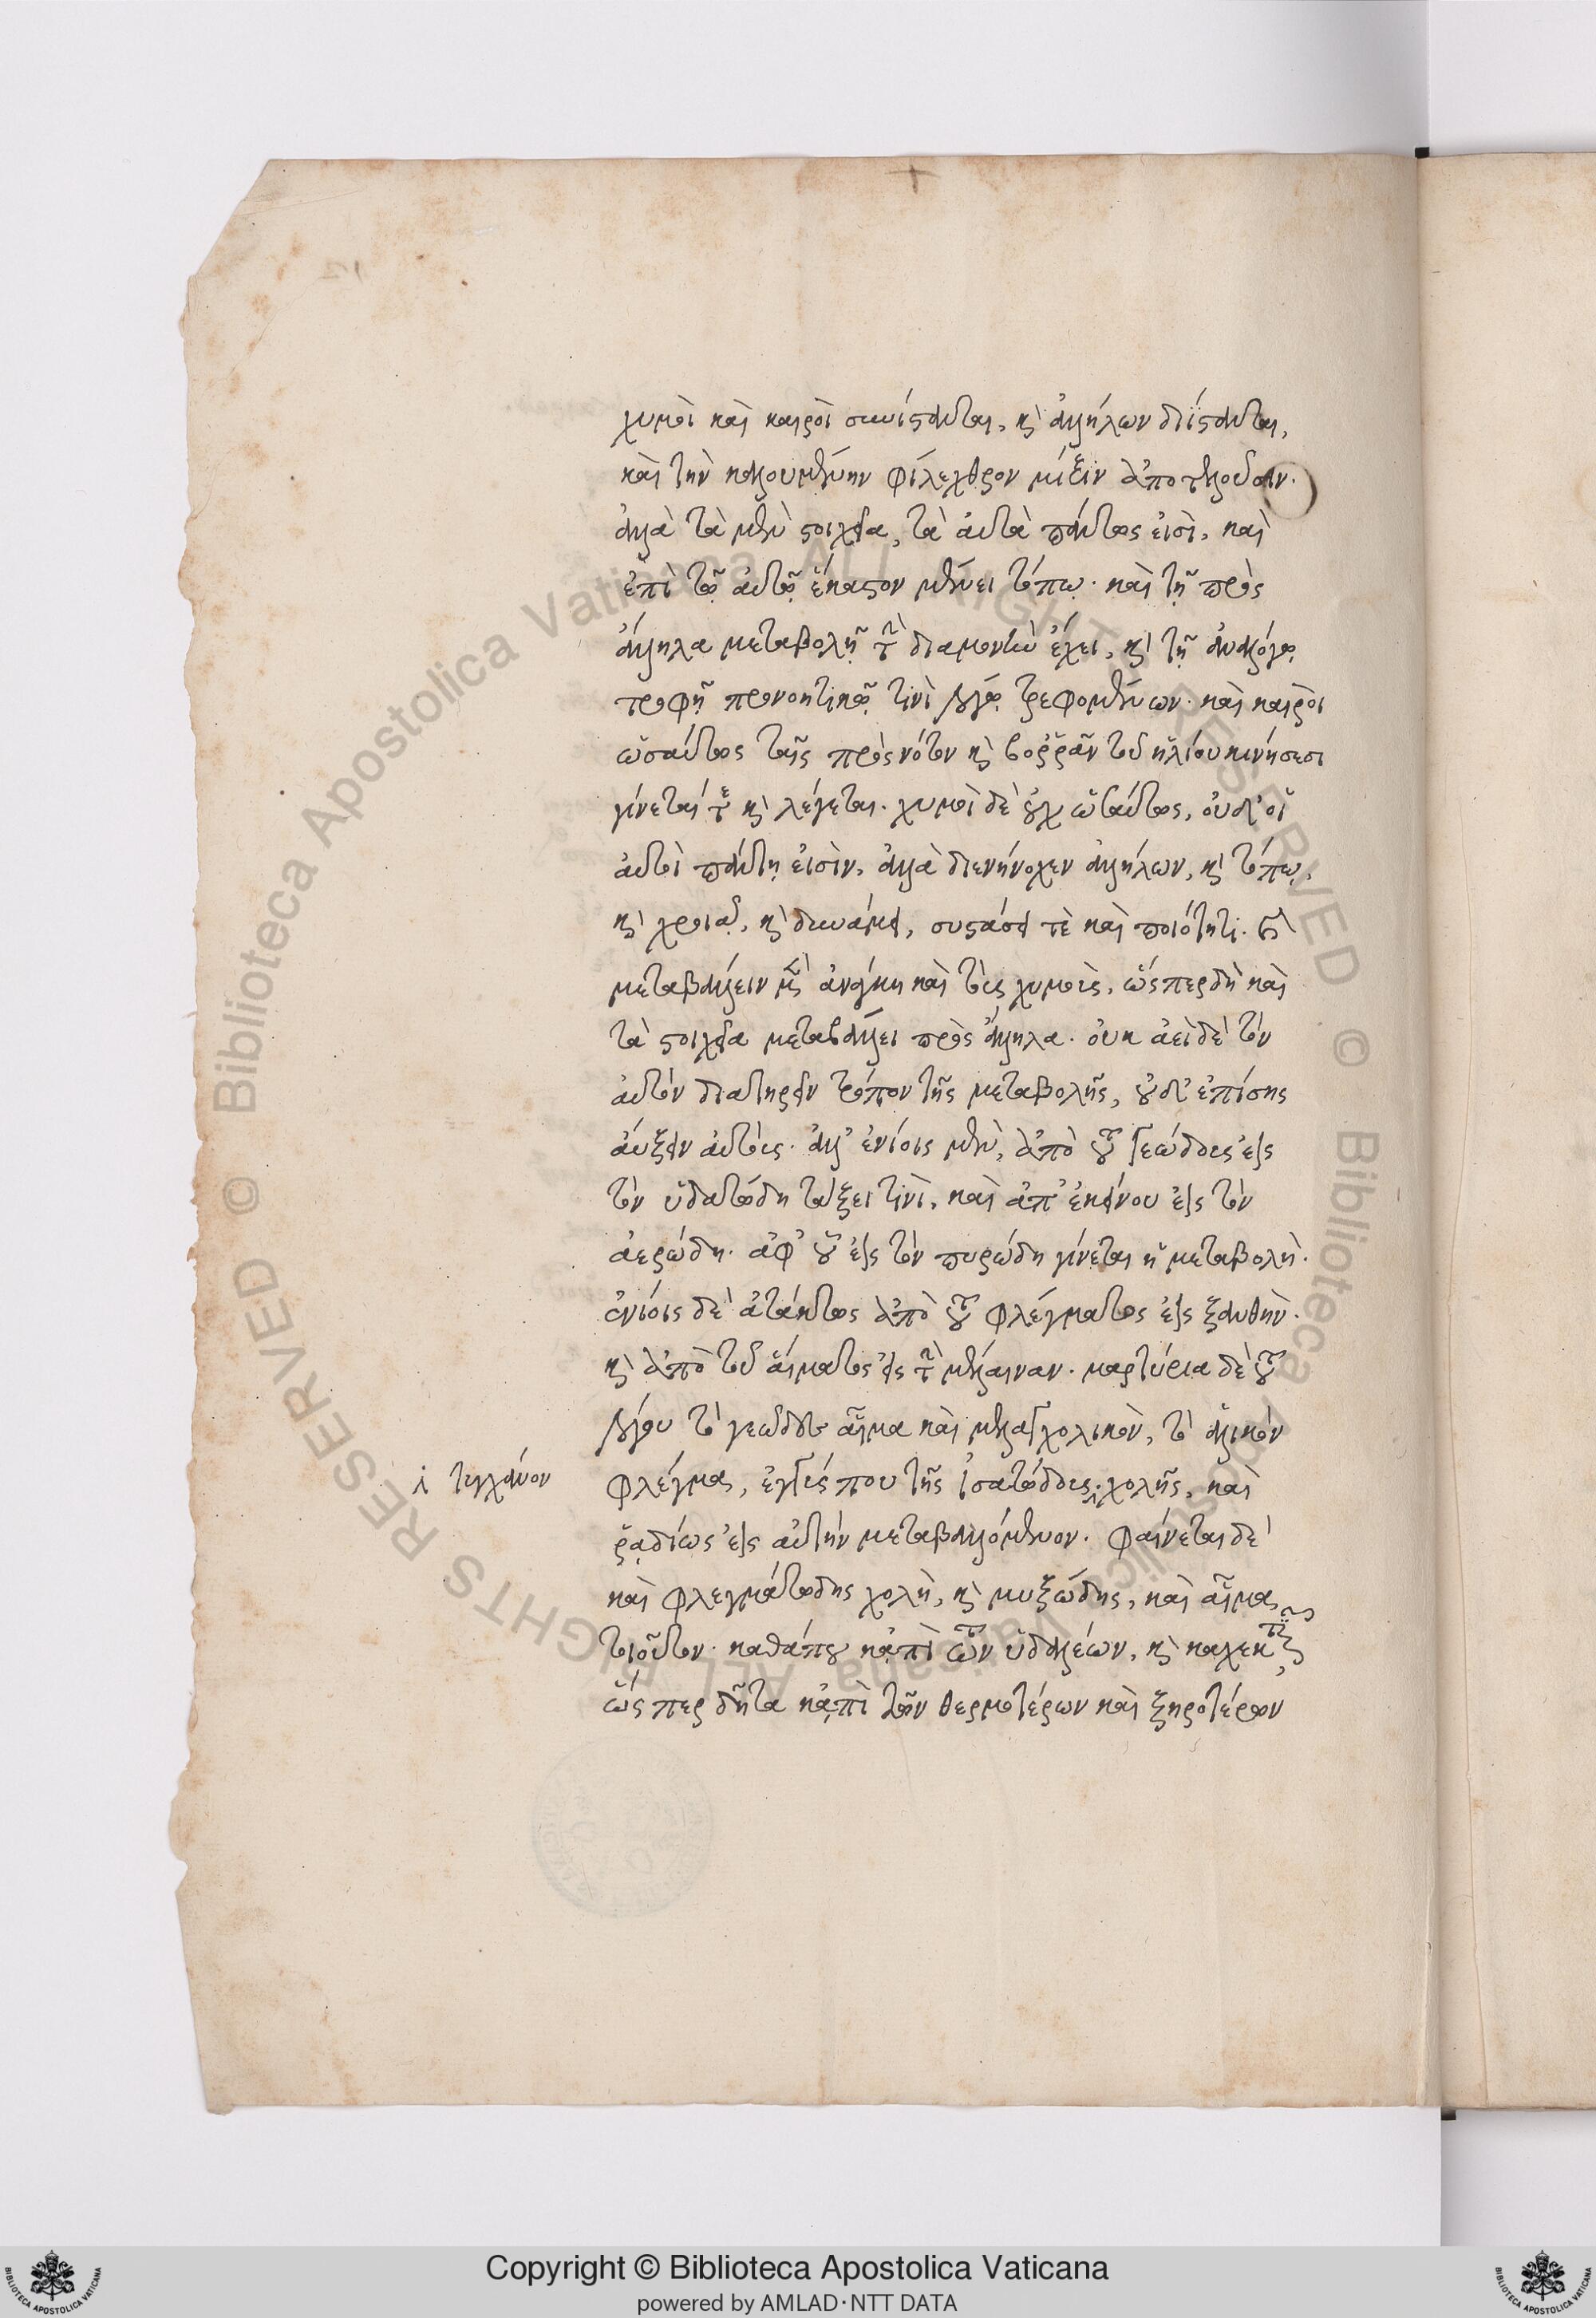 χυμοὶ καὶ καιροὶ συνίστανται, κ ἀλλήλων διΐστανται,
καὶ τὴν καλουμένην φίλεχθρον μίξιν ἀποτελοῦσιν.
ἀλλὰ τὰ μὲν στοιχεῖα, τὰ αὐτὰ πάντως εἰσὶ, καὶ
ἐπὶ τῷ αὐτῷ ἕκαστον μένει τόπῳ. καὶ τῇ πρὸς
ἄλληλα μεταβολῇ τὴν διαμονὴν ἔχει, κ τῇ ἀναλόγῳ
τροφῇ προνοητικῷ τινὶ λόγῳ τρεφομένων. καὶ καιροὶ
ὡσαύτως ταῖς πρὸς νότον κ βορρᾶν τοῦ ἡλίου κινήσεσι
γίνεταί τε κ λέγεται. χυμοὶ δὲ οὐχ ὡσαύτως, οὐδ' οἱ
αὐτοὶ πάντη εἰσὶν, ἀλλὰ διενήνοχεν ἀλλήλων, κ τόπῳ,
κ χροιᾷ, κ δυνάμει, συστάσει τὲ καὶ ποιότητι.
μεταβάλλειν μὲν ἀνάγκη καὶ τοὺς χυμοὺς, ὥσπερ δὴ καὶ
τὰ στοιχεῖα μεταβάλλει πρὸς ἄλληλα. οὐκ ἀεὶ δὲ τὸν
αὐτὸν διατηρεῖν τρόπον τῆς μεταβολῆς, οὐδ' ἐπίσης
αὔξειν αὐτούς. ἀλλ' ἐνίοις μὲν, ἀπὸ τοῦ γεώδους εἰς
τὸν ὑδατώδη τάξει τινὶ, καὶ ἀπ' ἐκείνου εἰς τὸν
ἀερώδη. ἀφ' οὗ εἰς τὸν πυρώδη γίνεται ἡ μεταβολὴ.
ἐνίοις δὲ ἀτάκτως ἀπὸ τοῦ φλέγματος εἰς ξανθὴν.
κ ἀπὸ τοῦ αἵματος εἰς τὴν μέλαιναν. μαρτύρια δὲ τοῦ
λόγου τὸ γεῶδες αἷμα καὶ μελαγχολικὸν, τὸ ἁλικὸν
φλέγμα, ἐγγύς που τῆς ἰσατώδους χολῆς, καὶ
τυγχάνον
ῥᾳδίως εἰς αὐτὴν μεταβαλλόμενον. φαίνεται δὲ
καὶ φλεγματώδης χολὴ, κ μυξώδης, καὶ αἷμα
τοιοῦτον. καθάπερ κἀπὶ τῶν ὑδαλέων, κ καχεκτ
ὥσπερ δῆτα κἀπὶ τῶν θερμοτέρων καὶ ξηροτέρων
Copyright © Biblioteca Apostolica Vaticana
powered by AMLAD·NTT DATA